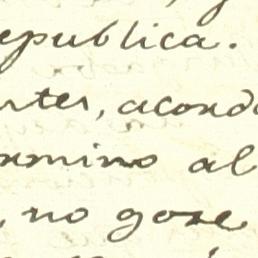 epublica.
ntes, acorda
ermino al
, no gose